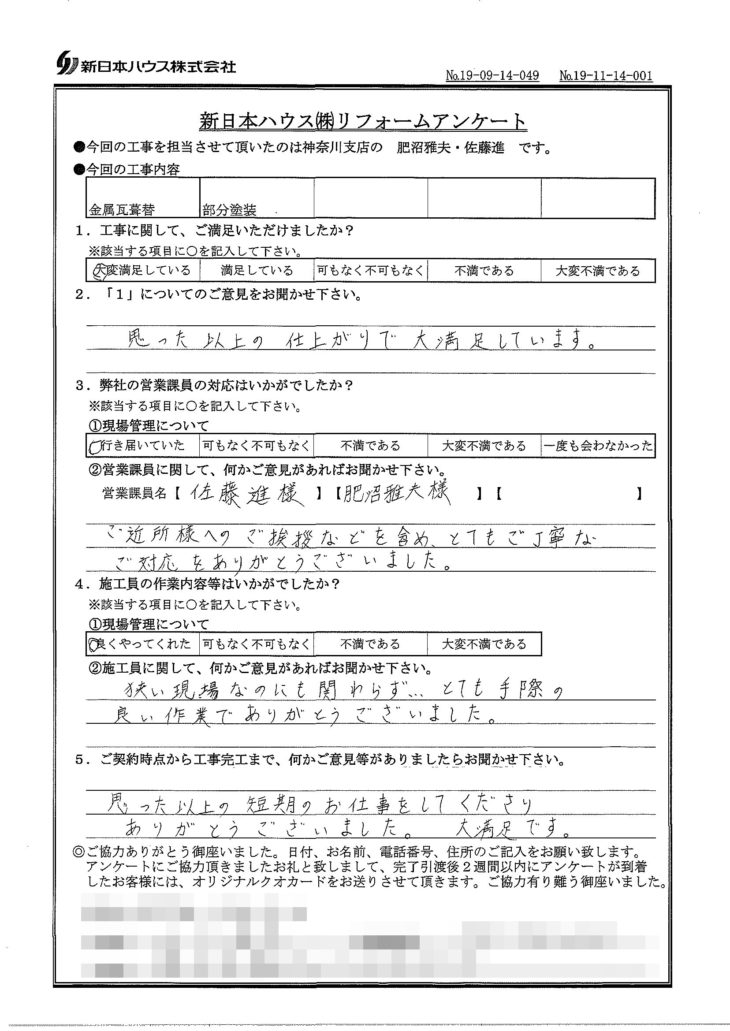 新日本ハウス株式会社
№19-09-14-049 №19-11-14-001
新日本ハウス㈱リフォームアンケート
●今回の工事を担当させて頂いたのは神奈川支店の 肥沼雅夫・佐藤進 です。
●今回の工事内容
金属瓦葺替 部分塗装
1．工事に関して、ご満足いただけましたか？
※該当する項目に○を記入して下さい。
大変満足している 満足している 可もなく不可もなく 不満である 大変不満である
2．「1」についてのご意見をお聞かせ下さい。
思った以上の仕上がりで大満足しています。
3．弊社の営業課員の対応はいかがでしたか？
※該当する項目に○を記入して下さい。
①現場管理について
行き届いていた 可もなく不可もなく 不満である 大変不満である 一度も会わなかった
②営業課員に関して、何かご意見があればお聞かせ下さい。
営業課員名【 佐藤進様 】【 肥沼雅夫様 】【 】
ご近所様へのご挨拶などを含め、とてもご丁寧な
ご対応をありがとうございました。
4．施工員の作業内容等はいかがでしたか？
※該当する項目に○を記入して下さい。
①現場管理について
良くやってくれた 可もなく不可もなく 不満である 大変不満である
②施工員に関して、何かご意見があればお聞かせ下さい。
狭い現場なのにも関わらず… とても手際の
良い作業でありがとうございました。
5．ご契約時点から工事完工まで、何かご意見等がありましたらお聞かせ下さい。
思った以上の短期のお仕事をしてくださり
ありがとうございました。 大満足です。
◎ご協力ありがとう御座いました。日付、お名前、電話番号、住所のご記入をお願い致します。
アンケートにご協力頂きましたお礼と致しまして、完了引渡後2週間以内にアンケートが到着
したお客様には、オリジナルクオカードをお送りさせて頂きます。ご協力有り難う御座いました。